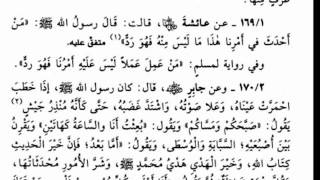 ١٦٩/١ - عن عائشة ﷺ، قالت: قَالَ رسولُ الله ﷺ: «مَنْ
أَحْدَثَ في أَمْرِنا هٰذا مَا لَيْسَ مِنْهُ فَهُوَ رَدٌّ»(١) متفقٌ عليه.
وفي رواية لمسلمٍ: «مَنْ عَمِلَ عَمَلاً لَيْسَ عَلَيْهِ أَمْرُنَا فَهُوَ رَدٌّ».
١٧٠/٢ - وعن جابرٍ ، قال: كان رسولُ الله ﷺ، إذَا خَطَبَ
احْمَرَّتْ عَيْنَاهُ، وَعَلا صَوْتُهُ، وَاشْتَدَّ غَضَبُهُ، حتَّى كَأَنَّهُ مُنْذِرُ جَيْشٍ(٢)
يَقُولُ: «صَبَّحَكُمْ وَمَسَّاكُمْ» وَيَقُولُ: «بُعِثْتُ أَنَا وَالسَّاعَةُ كَهَاتَيْنِ» وَيَقْرِنُ
بَيْنَ أُصْبُعَيْهِ؛ السَّبَّابَةِ وَالْوُسْطَى، وَيَقُولُ: «أَمَّا بَعْدُ؛ فَإِنَّ خَيْرَ الْحَدِيثِ
كِتَابُ اللهِ، وَخَيْرَ الْهَدْيِ هَدْيُ مُحَمَّدٍ ﷺ، وَشَرَّ الأُمُورِ مُحْدَثَاتُهَا،